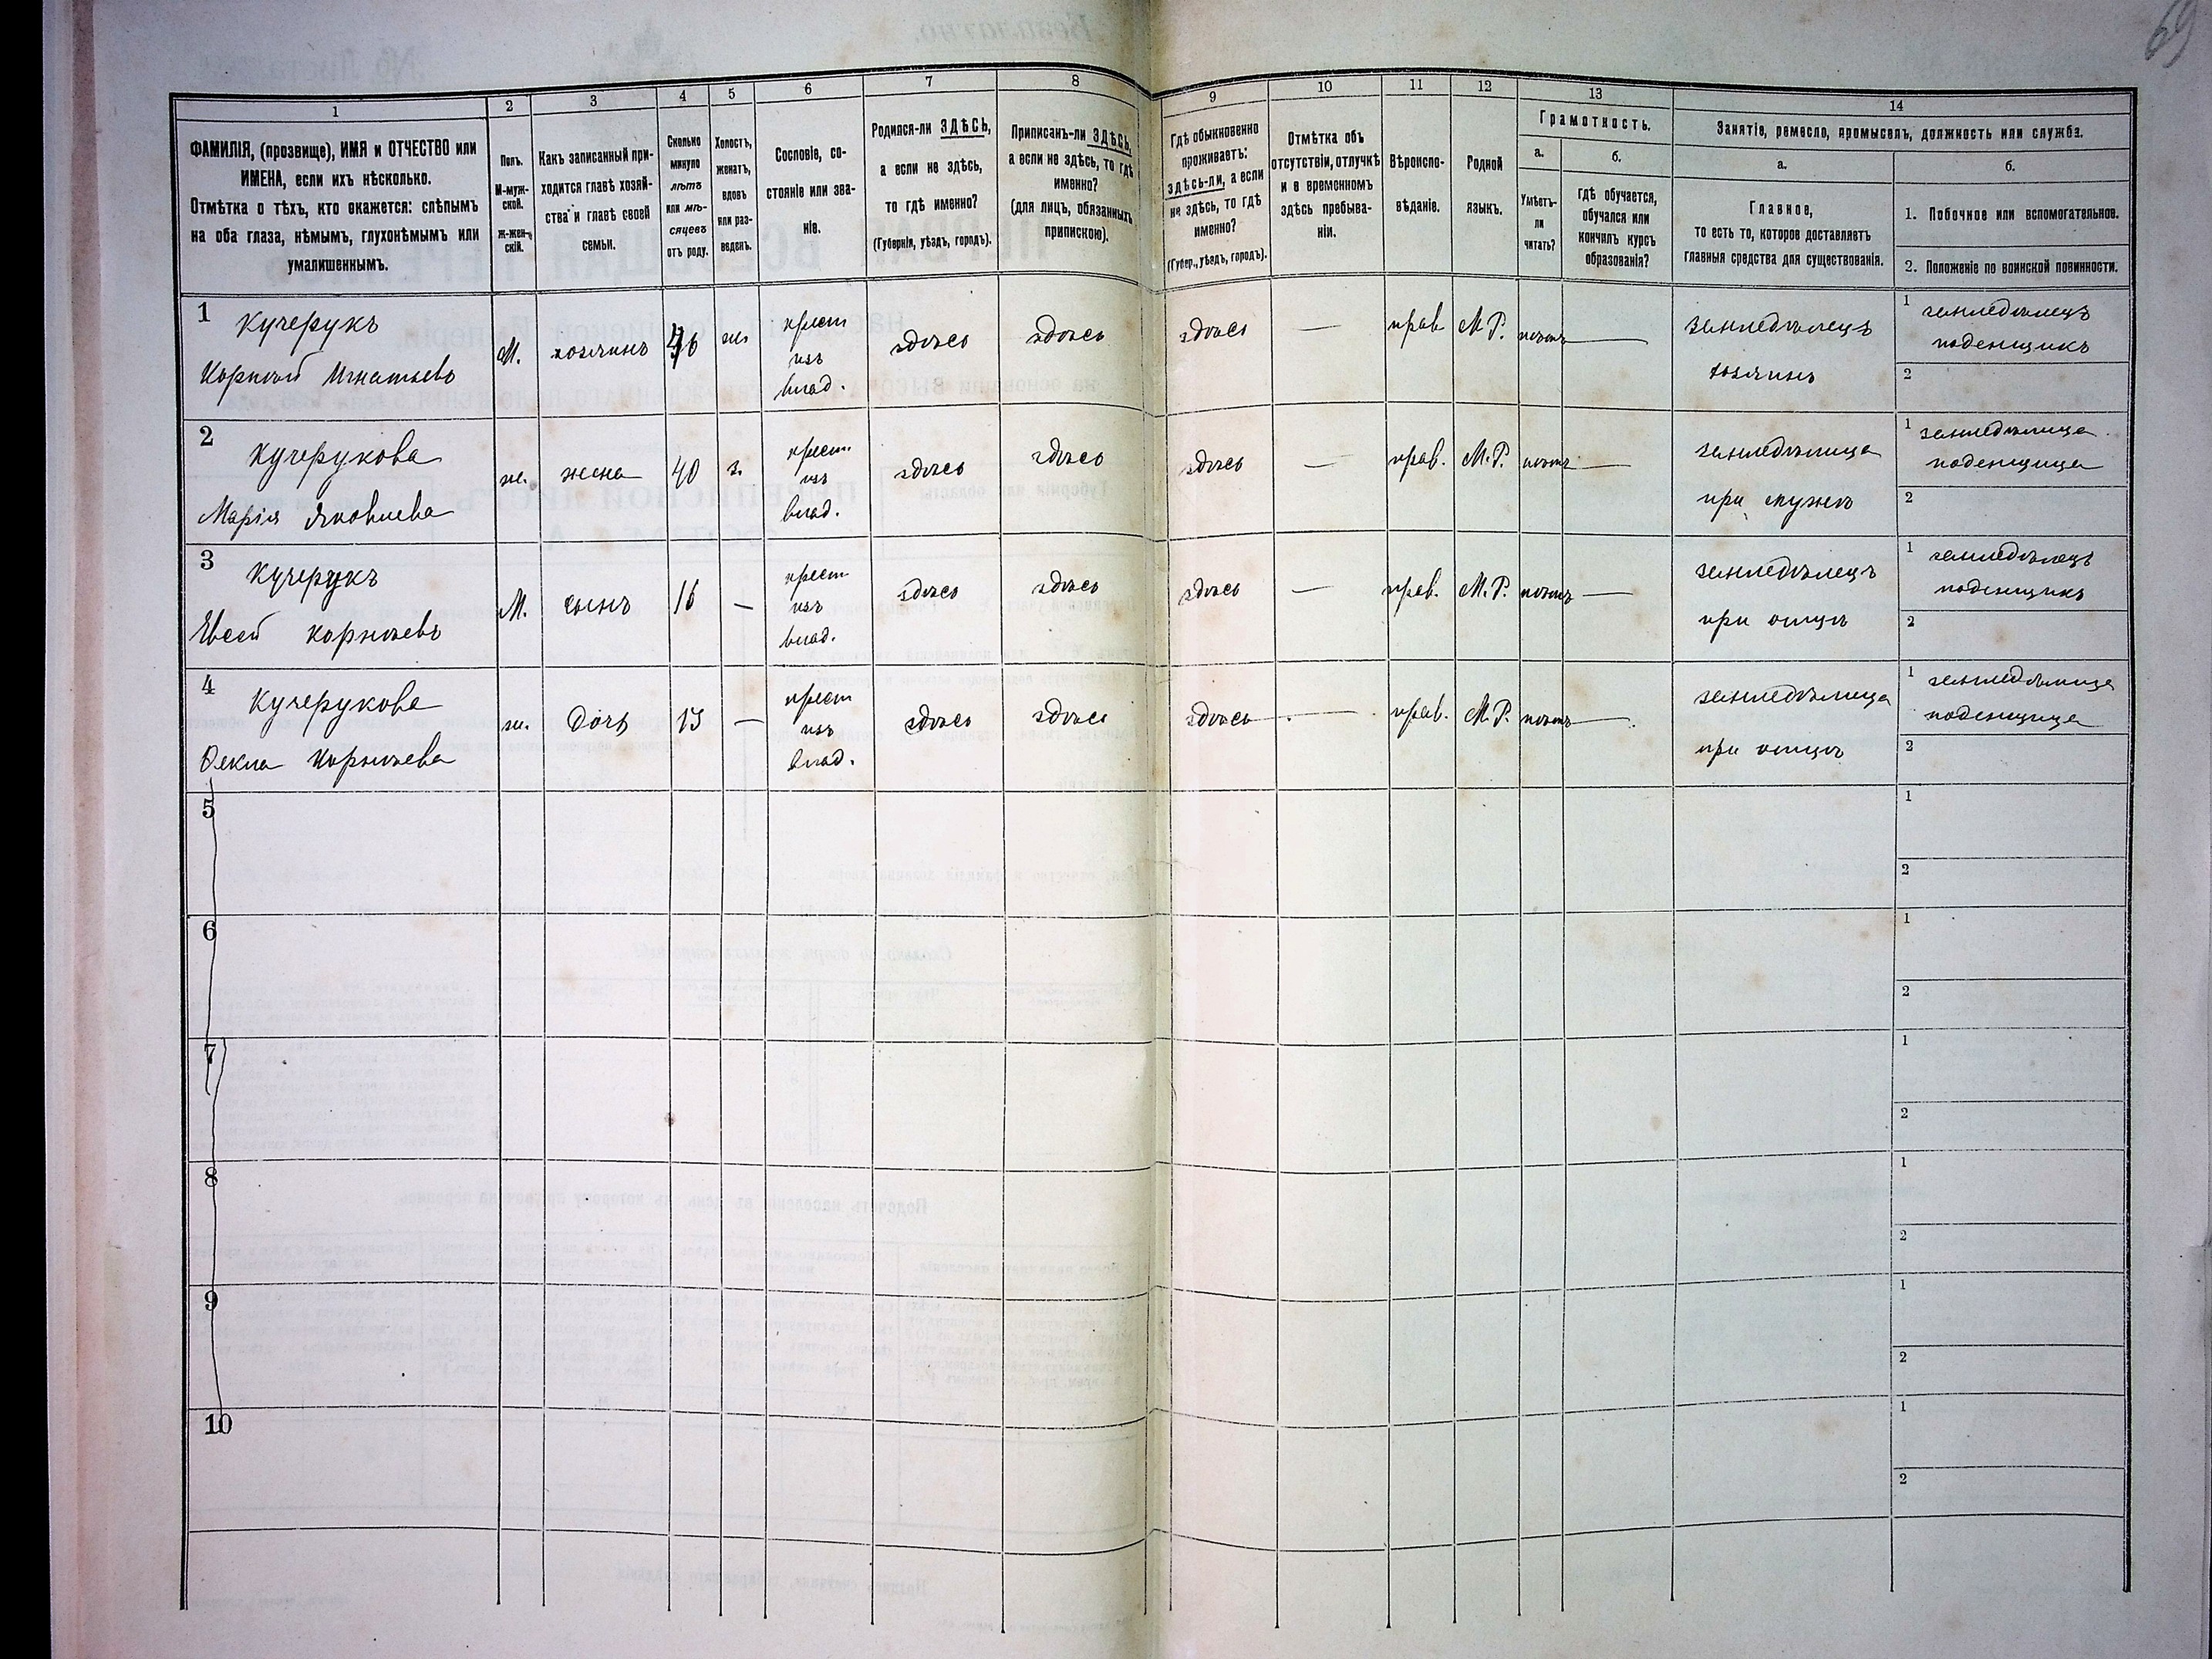 69
1
ФАМИЛІЯ, (прозвище), ИМЯ и ОТЧЕСТВО или
ИМЕНА, если ихъ нѣсколько.
Отмѣтка о тѣхъ, кто окажется: слѣпымъ
на оба глаза, нѣмымъ, глухонѣмымъ или
умалишеннымъ.
2
Полъ.
М-муж-
ской.
ж-жен-
скій.
3
Какъ записанный при-
ходится главѣ хозяй-
ства и главѣ своей
семьи.
4
Сколько
минуло
лѣтъ
или мѣ-
сяцевъ
отъ роду.
5
Холостъ,
женатъ,
вдовъ
или раз-
веденъ.
6
Сословіе, со-
стояніе или зва-
ніе.
7
Родился-ли ЗДѢСЬ,
а если не здѣсь,
то гдѣ именно?
(Губернія, уѣздъ, городъ).
8
Приписанъ-ли ЗДѢСЬ,
а если не здѣсь, то гдѣ
именно?
(для лицъ, обязанныхъ
припискою).
9
Гдѣ обыкновенно
проживаетъ:
здѣсь-ли, а если
не здѣсь, то гдѣ
именно?
(Губер., уѣздъ, городъ).
10
Отмѣтка объ
отсутствіи, отлучкѣ
и о временномъ
здѣсь пребыва-
ніи.
11
Вѣроиспо-
вѣданіе.
12
Родной
языкъ.
13
Грамотность.
а.
Умѣетъ-
ли
читать?
б.
гдѣ обучается,
обучался или
кончилъ курсъ
образованія?
14
Занятіе, ремесло, промыселъ, должность или служба.
а.
Главное,
то есть то, которое доставляетъ
главныя средства для существованія.
б.
1. Побочное или вспомогательное.
2. Положеніе по воинской повинности.
1
Кучерукъ
Корнѣй Игнатьевъ
М.
хозяинъ
46
ж.
крест
изъ
влад.
здѣсь
здѣсь
здѣсь
—
прав
М. Р.
нѣтъ —
земледѣлецъ
хозяинъ
1 земледѣлецъ
поденщикъ
2
2
Кучерукова
Марія Яковлева
ж.
жена
40
з.
крест
изъ
влад.
здѣсь
здѣсь
здѣсь
—
прав.
М. Р.
нѣтъ —
земледѣлица
при мужѣ
1 земледѣлица
поденщица
2
3
Кучерукъ
Евсей Корнѣевъ
М.
сынъ
16
—
крест
изъ
влад.
здѣсь
здѣсь
здѣсь
—
прав.
М. Р.
нѣтъ —
земледѣлецъ
при отцѣ
1 земледѣлецъ
поденщикъ
2
4
Кучерукова
Ѳекла Корнѣева
ж.
дочь
13
—
крест
изъ
влад.
здѣсь
здѣсь
здѣсь
—
прав.
М. Р.
нѣтъ —
земледѣлица
при отцѣ
1 земледѣлица
поденщица
2
5
1
2
6
1
2
7
1
2
8
1
2
9
1
2
10
1
2